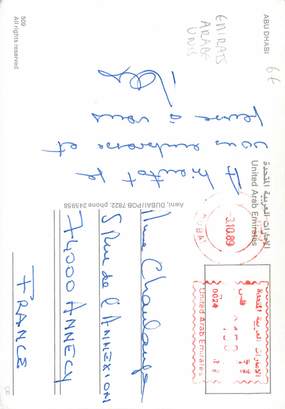 509
All rights reserved
ABU DHABI
EMIRATS
ARABE
UNIS
6F
A bientôt je
vous embrasse et
pense à vous
الامارات العربية المتحدة
United Arab Emirates
Awni, DUBAI/POB 7822, phone 245958
5 Rue de l'ANNEXION
74000 ANNECY
FRANCE
.10.89
DUBAI
الامارات العربية المتحدة
United Arab Emirates
0024